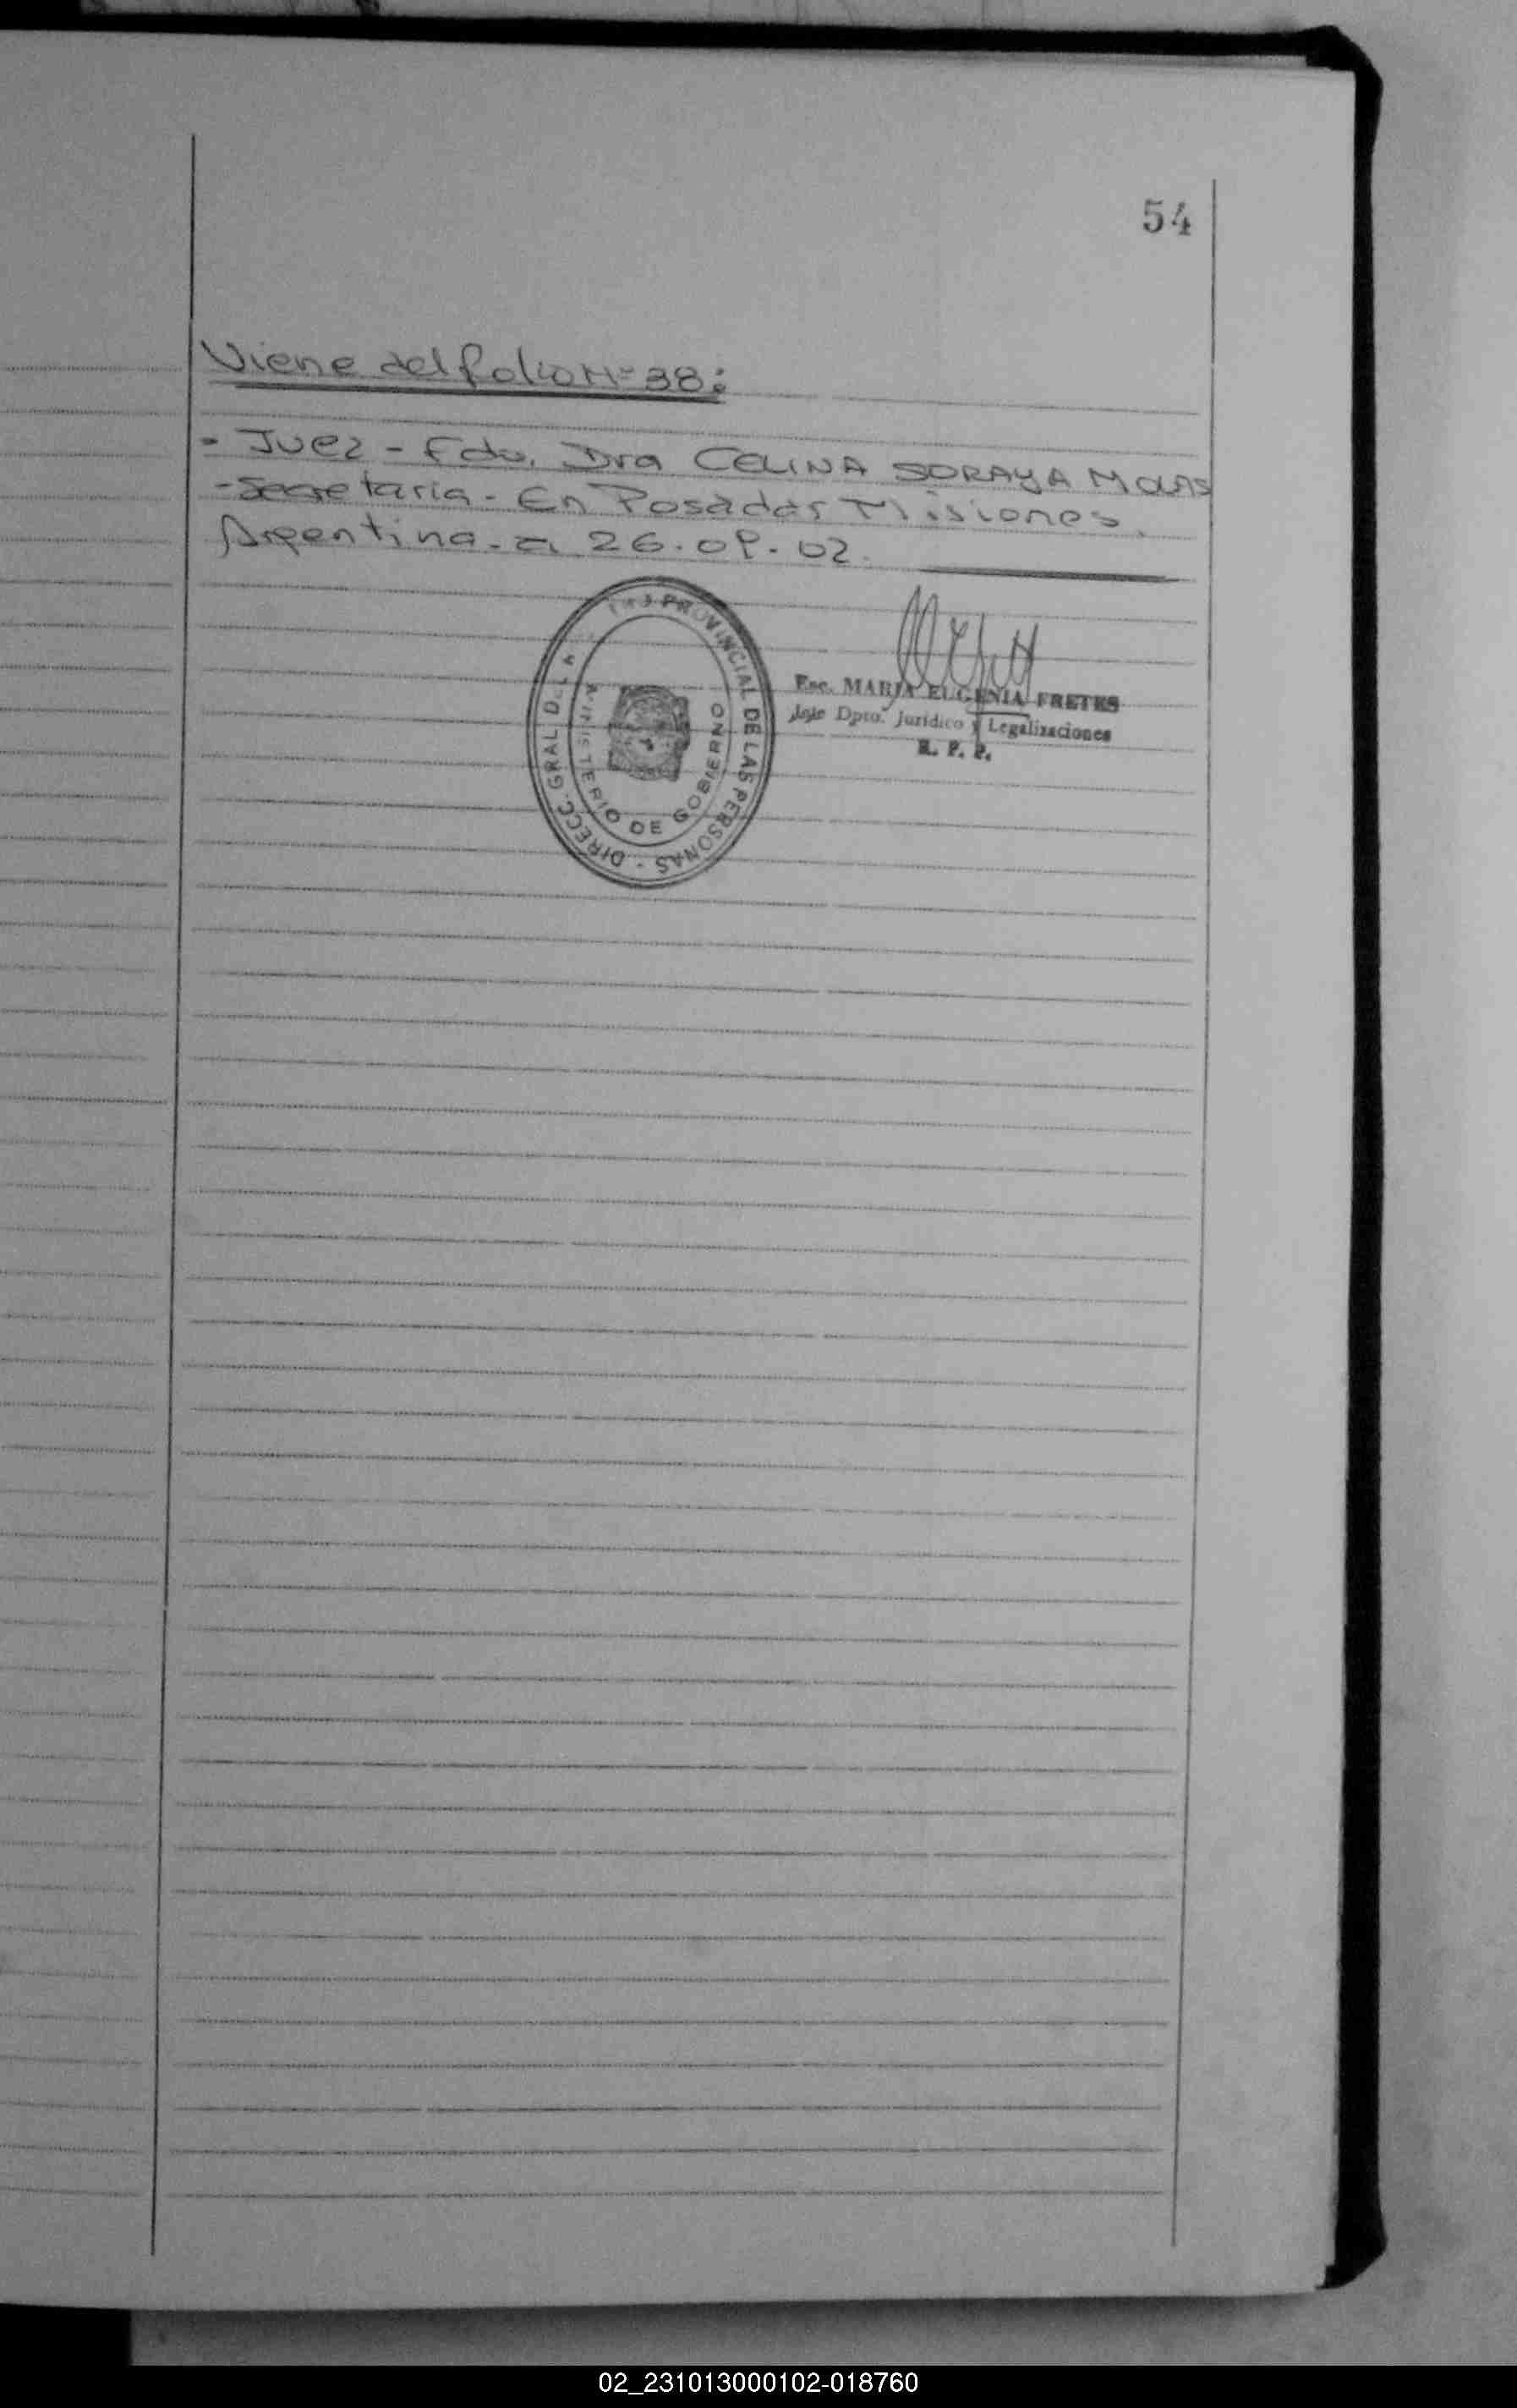 54
Viene del folio Nº 38:
- Juez - Fdo. Dra CELINA SORAYA
- Secretaria - En Posadas Misiones
Argentina - a 26.09.02.
PROVINCIAL DE LAS PERSONAS - DIRECC. GRAL. DE LA
MINISTERIO DE GOBIERNO
Esc. MARIA EUGENIA FRETES
Jefe Dpto. Jurídico y Legalizaciones
R. P. P.
02_231013000102-018760